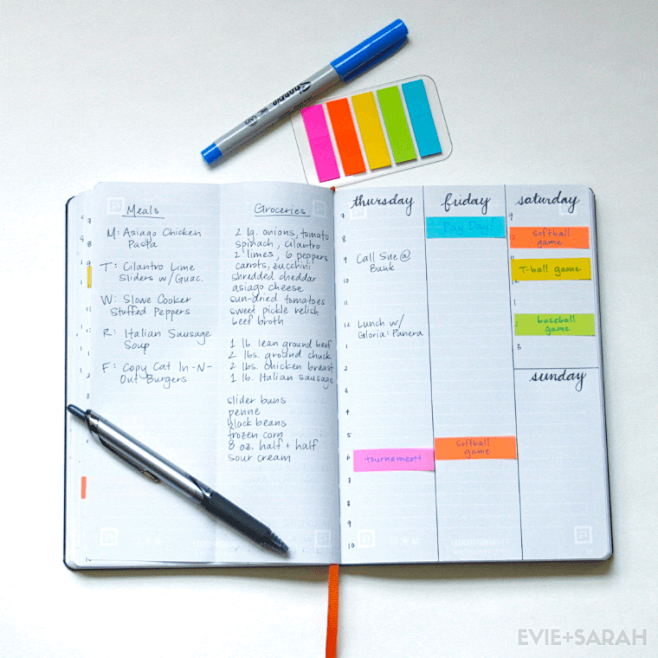 Sharpie
Meals
M: Asiago Chicken
Pasta
T: Cilantro Lime
Sliders w/Guac.
W: Slowe Cooker
Stuffed Peppers
R: Italian Sausage
Soup
F: Copy Cat In-N-
Out Burgers
Groceries
2 lg. onions, tomato
spinach, cilantro
2 limes, 6 peppers
carrots, zucchini
shredded cheddar
asiago cheese
sun-dried tomatoes
sweet pickle relish
beef broth
1 lb lean ground beef
2 lbs. ground chuck
2 lbs. chicken breast
1 lb. Italian sausage
slider buns
penne
black beans
frozen corn
8 oz. half + half
sour cream
thursday
Call Sue @
Bank
Lunch w/
Gloria: Panera
tournament
friday
Pay Day!
softball
game
saturday
softball
game
T-ball game
baseball
game
sunday
EVIE+SARAH